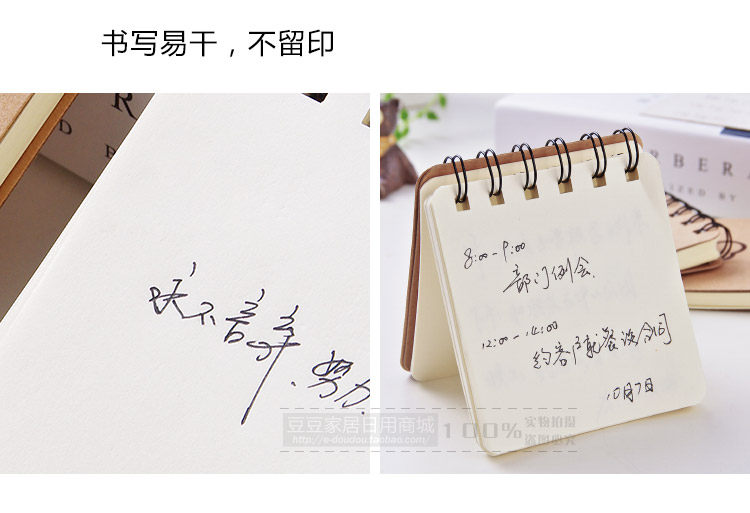 书写易干，不留印
永不言弃、努力
8:00-9:00
部门例会
12:00-14:00
约客户就餐谈合同
10月7日
豆豆家居日用商城
http://e-doudou.taobao.com/
100%
实物拍摄
盗图必究